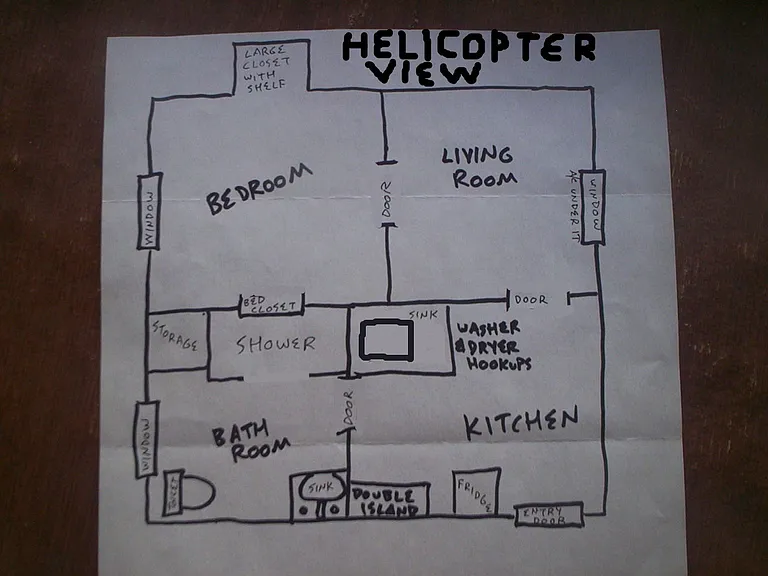 HELICOPTER
VIEW
LARGE
CLOSET
WITH
SHELF
BEDROOM
LIVING
ROOM
WINDOW
DOOR
WINDOW
AC UNDER IT
BED
CLOSET
DOOR
STORAGE
SHOWER
SINK
WASHER
& DRYER
HOOKUPS
WINDOW
BATH
ROOM
DOOR
KITCHEN
TOILET
SINK
DOUBLE
ISLAND
FRIDGE
ENTRY
DOOR